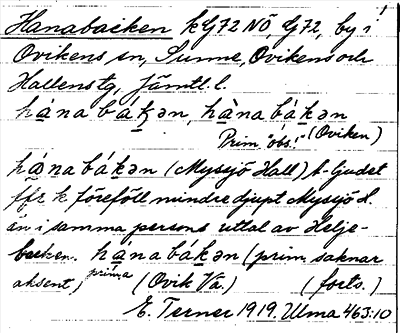 Hanabacken k G72 NÖ, G72, by i
Ovikens sn, Sunne, Oviken och
Hallens tg, Jämtl. l.
hána bákən, hàna bákən
Prim. "obs!" (Oviken)
hána bákən (Mysjö Hall) t-ljudet
ffr k föreföll mindre djupt Mysjö d.
än i samma persons uttal av Helje-
backen. hána bákən (prim. saknar
aksent, prima (Ovik Vä.) (forts.)
E. Terner 1919. Ulma 463:10